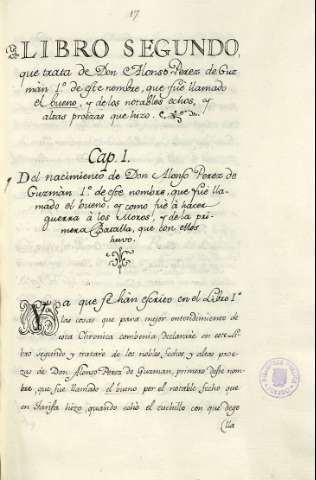 17
LIBRO SEGUNDO,
que trata de Don Alonso Perez de Guz
màn 1.º de este nombre, que fuè llamado
el bueno, y de los notables echos, y
altas proezas que hizo.
Cap. I.
Del nacimiento de Don Alonso Perez de
Guzmàn 1.º de este nombre, que fuè lla-
mado el bueno, y como fuè à hacer
guerra à los Moros, y de la pri-
mera Batalla, que con ellos
huvo.
Ya que se hàn escrito en el Libro 1.º
las cosas que para mejor entendimiento de
esta Chronica combenia declararse en este Li-
bro segundo, y tratarè de los nobles fechos y altas proe-
zas de Don Alonso Perez de Guzman, primero deste nom-
bre, que fue llamado el bueno por el notable fecho que
en Tarifa hizo, quando echò el cuchillo con que dego
lla